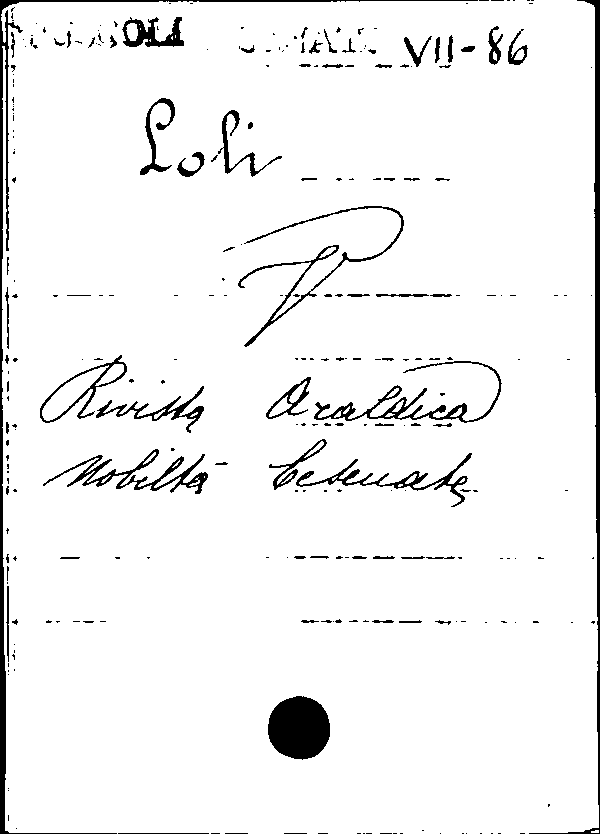 VII-86
Loli
V
Rivista Araldica
Nobiltà Cesenate